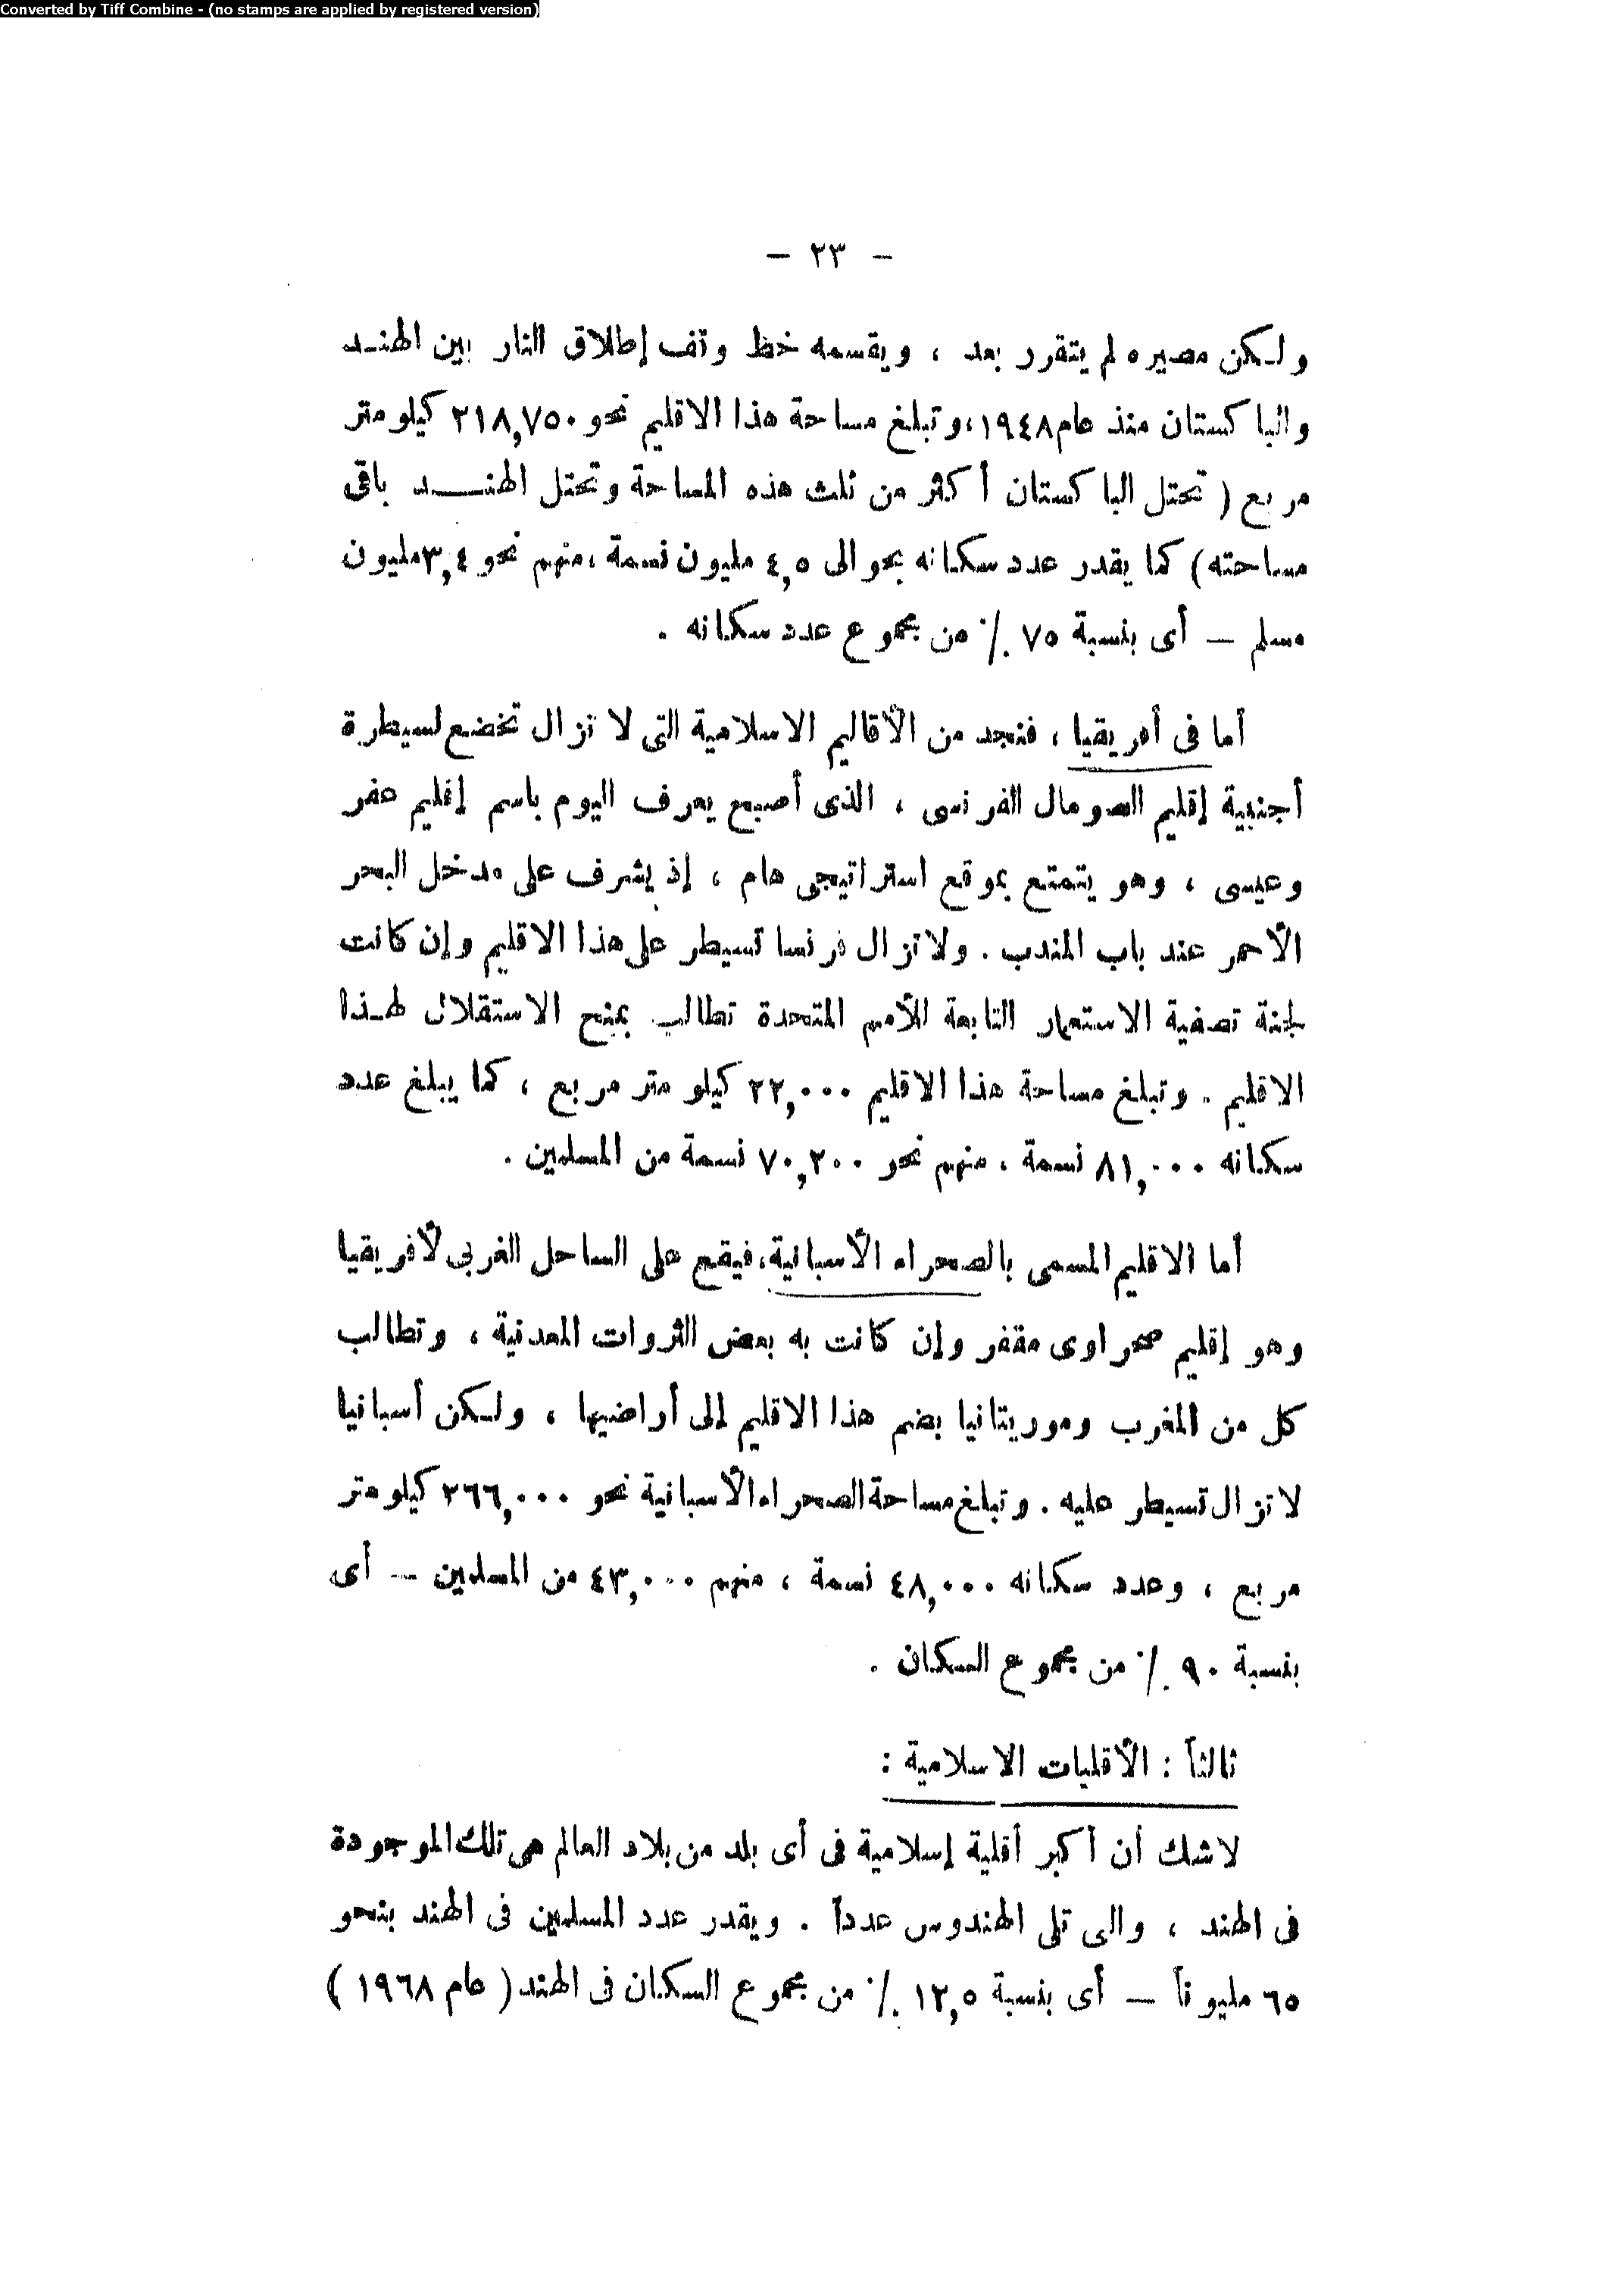 Converted by Tiff Combine - (no stamps are applied by registered version)
— ٢٣ —
ولكن مصيره لم يتقرر بعد ، ويقسمه خط وقف إطلاق النار بين الهند
والباكستان منذ عام ١٩٤٨، وتبلغ مساحة هذا الاقليم نحو ٢١٨,٧٥٠ كيلو متر
مربع ( تحتل الباكستان أكثر من ثلث هذه المساحة وتحتل الهند باقى
مساحته) كما يقدر عدد سكانه بحوالى ٤,٥ مليون نسمة ، منهم نحو ٣,٤ مليون
مسلم — أى بنسبة ٧٥ ٪ من مجموع عدد سكانه .
أما فى أفريقيا ، فنجد من الأقاليم الاسلامية التى لا تزال تخضع لسيطرة
أجنبية إقليم الصومال الفرنسى ، الذى أصبح يعرف اليوم باسم إقليم عفر
وعيسى ، وهو يتمتع بموقع استراتيجى هام ، إذ يشرف على مدخل البحر
الأحمر عند باب المندب . ولا تزال فرنسا تسيطر على هذا الاقليم وإن كانت
لجنة تصفية الاستعمار التابعة للأمم المتحدة تطالب بمنح الاستقلال لهذا
الاقليم . وتبلغ مساحة هذا الاقليم ٢٢,٠٠٠ كيلو متر مربع ، كما يبلغ عدد
سكانه ٨١,٠٠٠ نسمة ، منهم نحو ٧٠,٢٠٠ نسمة من المسلمين .
أما الاقليم المسمى بالصحراء الأسبانية، فيقع على الساحل الغربى لأفريقيا
وهو إقليم صحراوى مقفر وإن كانت به بعض الثروات المعدنية ، وتطالب
كل من المغرب وموريتانيا بضم هذا الاقليم إلى أراضيها ، ولكن أسبانيا
لا تزال تسيطر عليه . وتبلغ مساحة الصحراء الأسبانية نحو ٢٦٦,٠٠٠ كيلو متر
مربع ، وعدد سكانه ٤٨,٠٠٠ نسمة ، منهم ٤٣,٠٠٠ من المسلمين — أى
بنسبة ٩٠ ٪ من مجموع السكان .
ثالثاً : الأقليات الاسلامية :
لاشك أن أكبر أقلية إسلامية فى أى بلد من بلاد العالم هى تلك الموجودة
فى الهند ، والى تلى الهندوس عدداً . ويقدر عدد المسلمين فى الهند بنحو
٦٥ مليوناً — أى بنسبة ١٢,٥ ٪ من مجموع السكان فى الهند ( عام ١٩٦٨ )